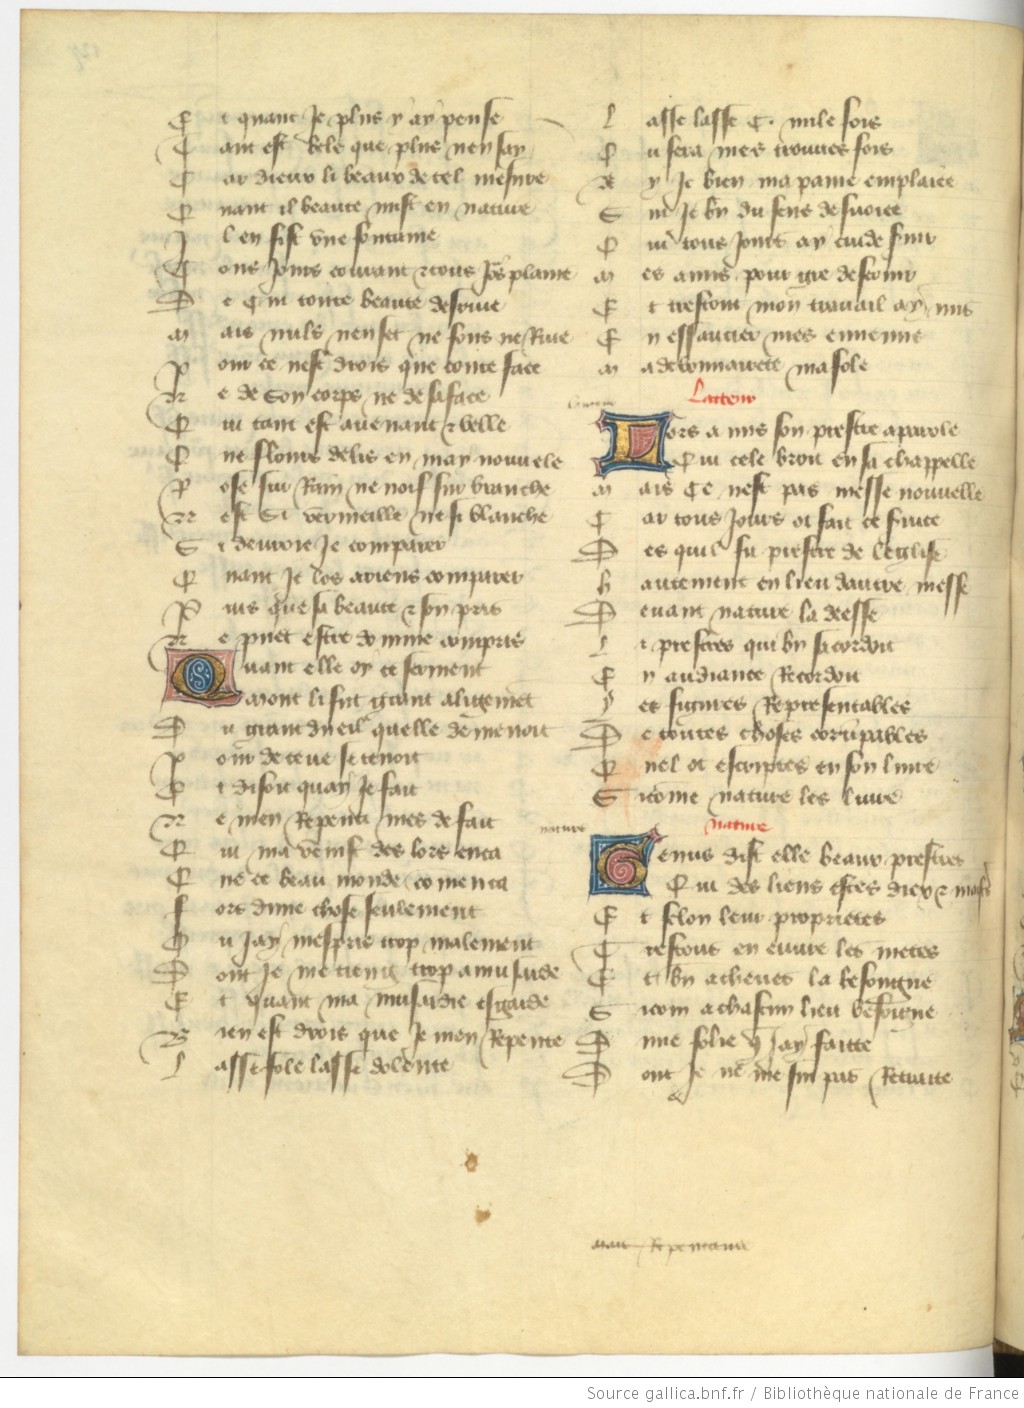 Et quant Je plus y ay pense
Tant est bele que plus nen say
Car dieux li beaux de tel mesure
Quant il beaute mist en nature
Il en fist une fontaine
Tous Jours courant et tous Jours plaine
De qui toute beaute desrive
Mais nuls nen set ne fons ne Rive
Pour ce nest drois que conte face
Ne de son corps ne de sa face
Qui tant est avenant et belle
Que flours de lis en may nouvele
Rose sur Rain ne noif sur branche
Nest si vermeille ne si blanche
Si devroie Je comparer
Quant Je los a riens comparer
Puis que sa beaute et son pris
Ne puet estre domme compris
Quant elle oy ce serment
Moult li fut grant aligement
Du grant dueil quelle demenoit
Pour deceue se tenoit
Et disoit quay Je fait
Ne men Repenti mes de fait
Qui ma venist des lors enca
Que ce beau monde comenca
Fors dune chose seulement
Ou Jay mespris trop malement
Dont Je me tieng trop a musarde
Et quant ma musardie esgarde
Bien est drois que Je men Repente
Lasse fole lasse dolente
Lasse lasse C. mile fois
Ou sera mes trouvee fois
Ay Je bien ma paine emploiee
Sui Je bien du sens desvoiee
Qui tous Jours ay cuide servir
Mes amis pour gre desservir
Et trestout mon travail ay mis
En essaucier mes ennemis
Ma debonnairete masole
Lacteur
Lors a mis son prestre a parole
Qui cele brou en sa chappelle
Mais Ce nest pas messe nouvelle
Car tous Jours ot fait ce service
Des quil fu prestre de leglise
Hautement en lieu dautre messe
Devant nature la deesse
Li prestres qui bien sacordoit
En audiance Recordoit
Les figures Representables
De toutes choses corrumpables
Quel ot escriptes en son livre
Si come nature les livre
nature
nature
Genius dist elle beaux prestres
Qui des liens estes diex et mestres
Et selon leur proprietes
Trestous en euvre les metes
Et bien acheves la besongne
Si com a chascun lieu besoigne
Dune folie que Jay faitte
Dont Je ne me sui pas Retraite
Repentance
Source gallica.bnf.fr / Bibliothèque nationale de France